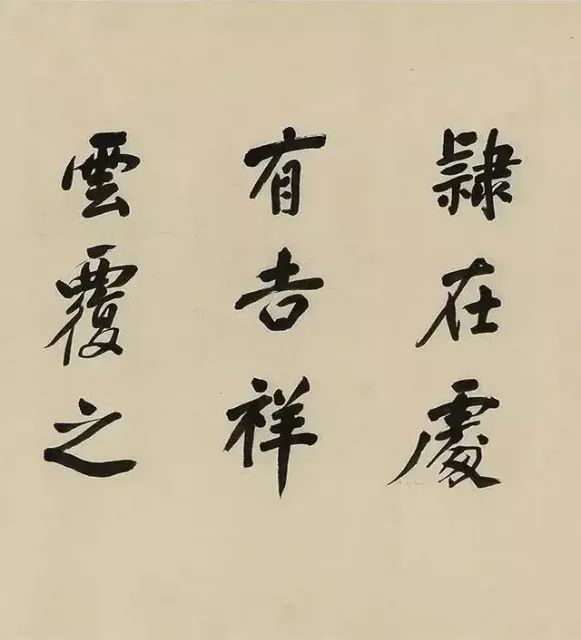 隸在處
有吉祥
雲覆之